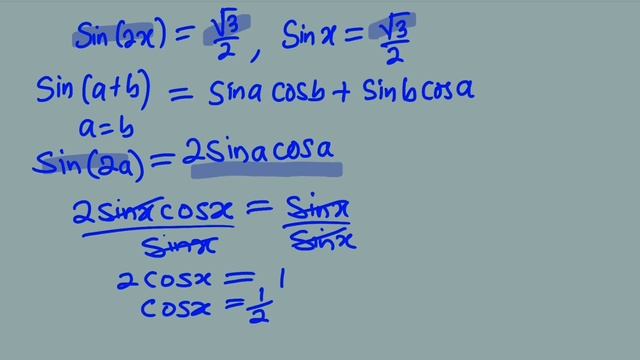 Sin(2x) = √3/2, Sin x = √3/2
Sin(a+b) = Sina cosb + Sinb cosa
a=b
Sin(2a) = 2Sina cosa
2Sinx cosx / Sinx = Sinx / Sinx
2cosx = 1
cosx = 1/2